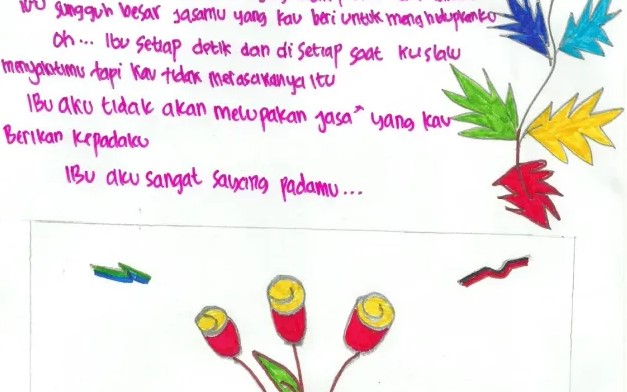 Ibu sungguh besar jasamu yang kau beri untuk menghidupkanku
Oh... Ibu setiap detik dan di setiap saat kuslalu
menyakitimu tapi kau tidak merasakannya itu
Ibu aku tidak akan melupakan jasa² yang kau
Berikan kepadaku
Ibu aku sangat sayang padamu...